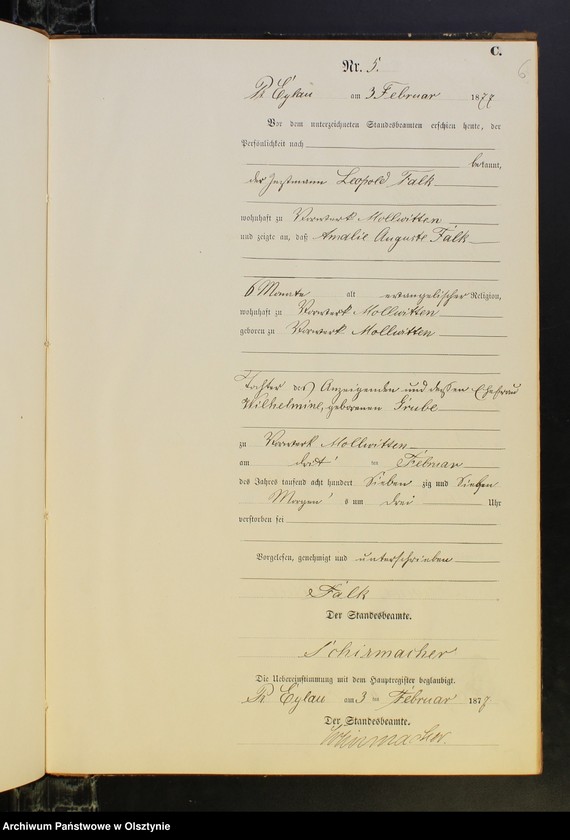 C.
6
Nr. 5.
Pr Eylau am 3 Februar 1877
Vor dem unterzeichneten Standesbeamten erschien heute, der
Persönlichkeit nach
bekannt,
der Instmann Leopold Falk
wohnhaft zu Vorwerk Mollwitten
und zeigte an, daß Amalie Auguste Falk
6 Monate alt evangelischer Religion,
wohnhaft zu Vorwerk Mollwitten
geboren zu Vorwerk Mollwitten
Tochter des Anzeigenden und dessen Ehefrau
Wilhelmine, geborenen Grube
zu Vorwerk Mollwitten
am drit ten Februar
des Jahres tausend acht hundert Sieben zig und Sieben
Morgen s um drei Uhr
verstorben sei
Vorgelesen, genehmigt und unterschrieben
Falk
Der Standesbeamte.
Schirmacher
Die Uebereinstimmung mit dem Hauptregister beglaubigt.
Pr Eylau am 3 ten Februar 1877
Der Standesbeamte.
Schirmacher
Archiwum Państwowe w Olsztynie
Archiwum Państwowe w Olsztynie